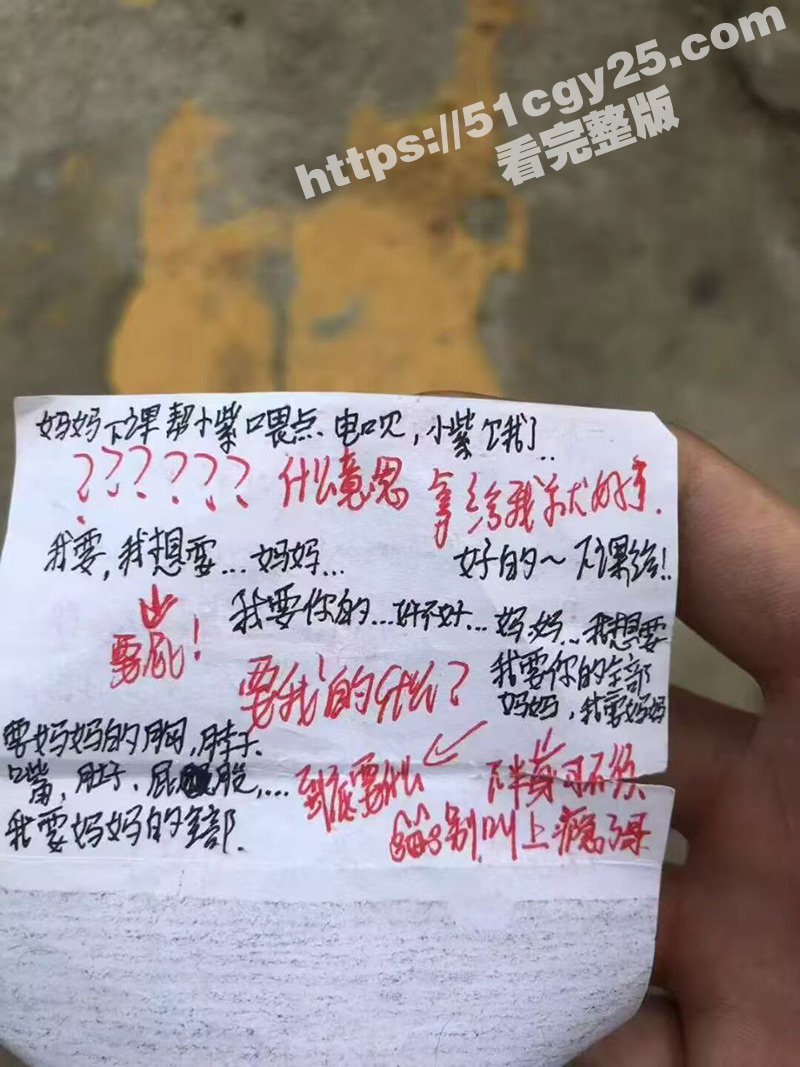 https://51cgy25.com
看完整版
妈妈下课帮小紫喂点电吧,小紫饿了..
?????? 什么意思 拿给我就好了.
我要,我想要...妈妈... 好的~下课给!!
要屁!
我要你的...好不好... 妈妈...我想要
我要你的全部
妈妈,我要妈妈
要我的什么?
要妈妈的胸,脖子.
嘴,肚子,屁股,...
我要妈妈的全部.
到底要什么
下半身可不须
别叫上瘾了